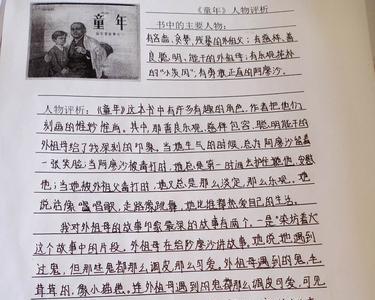 童年
《童年》人物评析
书中的主要人物:
有吝啬、贪婪、残暴的外祖父;有慈祥、善
良聪明、能干的外祖母;有乐观淳朴
的“小茨冈”,有勇敢正直的阿廖沙。
人物评析:《童年》这本书中有许多有趣的角色,作者把他们
刻画的惟妙惟肖。其中,那善良乐观、慈祥包容、聪明能干的
外祖母给了我深刻的印象。当她生气的时候,总为阿廖沙绘着
一张笑脸;当阿廖沙被毒打时,她总是第一时间去护住她他,安慰
他;当她被外祖父毒打时,她又总是那么淡定,那么乐观。她
说话像唱歌,走路像跳舞,她比谁都热爱自己的生活。
我对外祖母的故事印象最深的故事有两个,一是“染坊着火
这个故事中的片段。外祖母在给阿廖沙讲故事,她说她遇到
过鬼,但那些鬼都那么调皮,那么可爱。外祖母遇到的鬼,毛
茸茸的,像小猫崽。连外祖母遇到的鬼都那么调皮可爱,可见